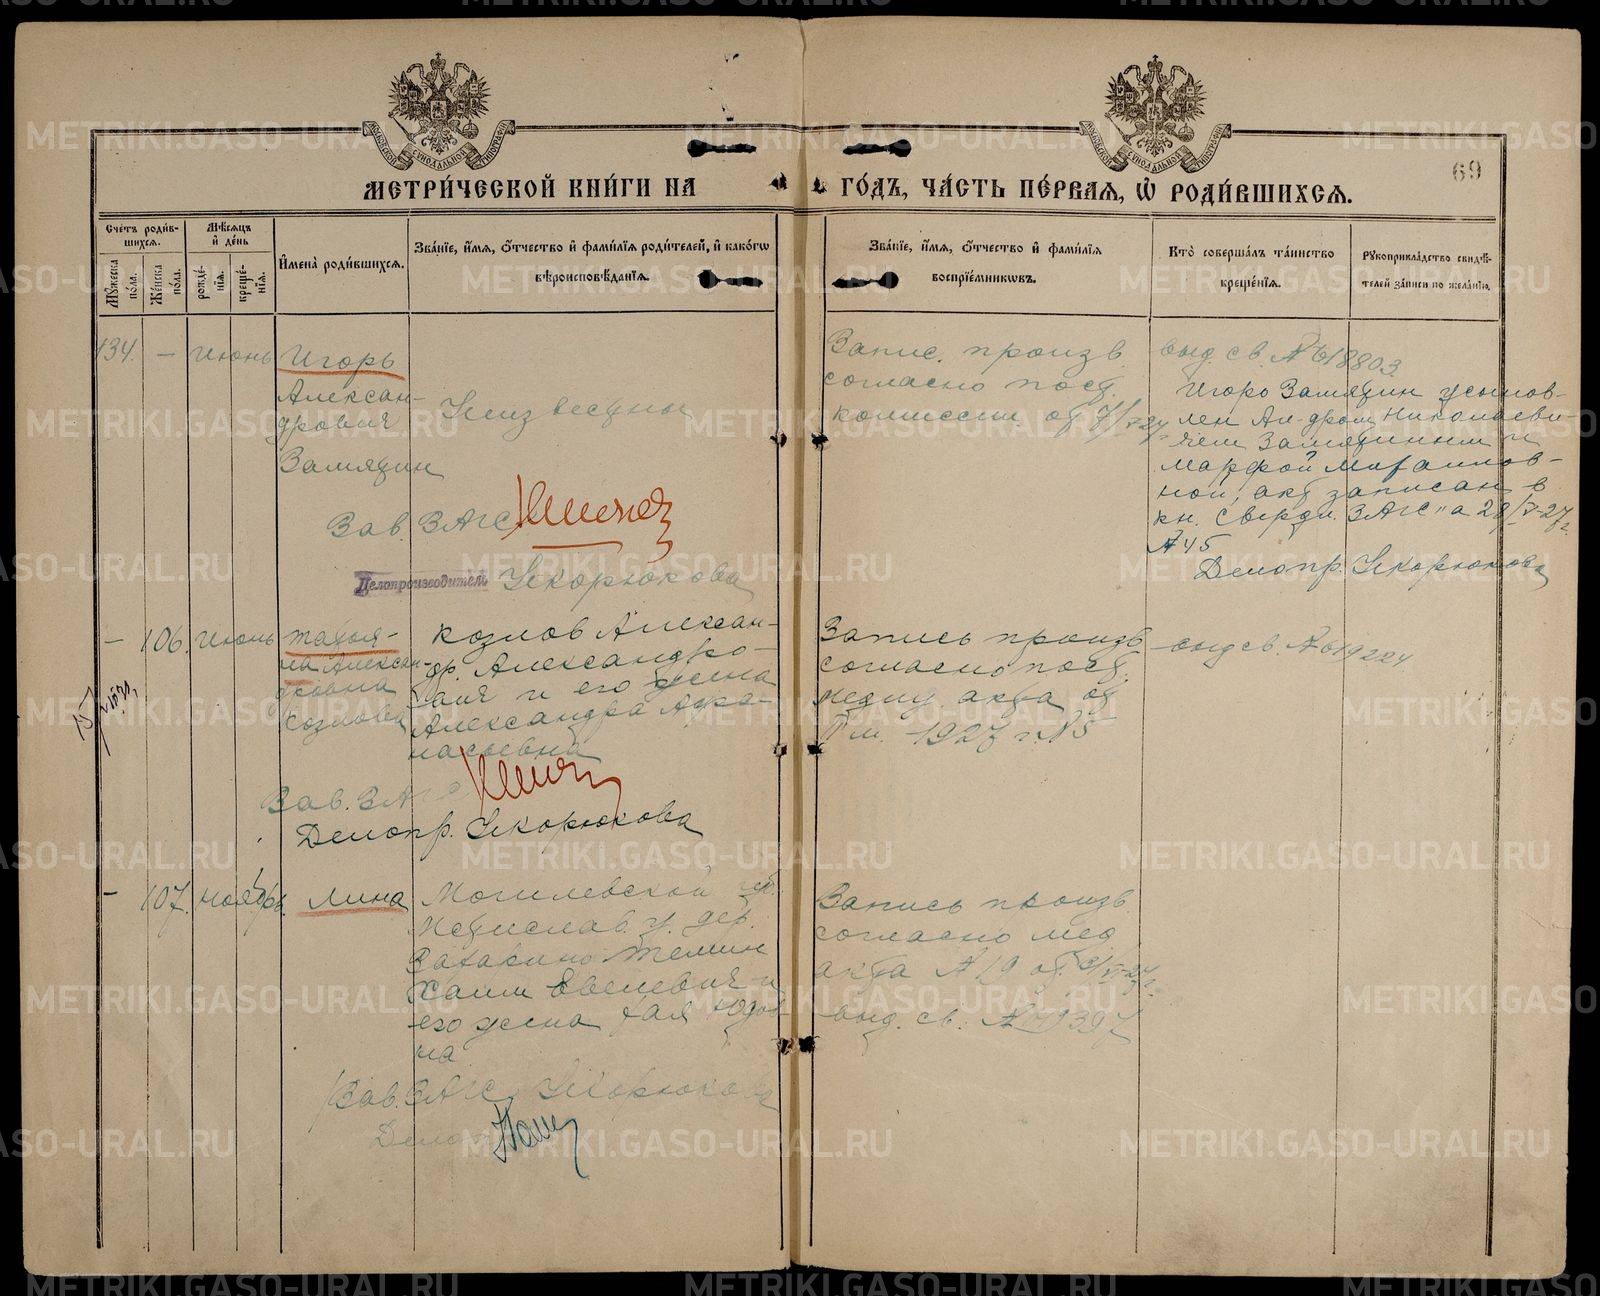 МЕТРИ́ЧЕСКОЙ КНИ́ГИ НА ГО́ДЪ, ЧА́СТЬ ПЕ́РВАЯ, Ѡ РОДИ́ВШИХСЯ.
69
Сче́тъ роди́в-
шихся.
Мѣ́сяцъ
и҆ де́нь
Мꙋ́жеска
по́ла.
Же́нска
по́ла.
рожде́-
нїя.
креще́-
нїя.
И҆мена̀ роди́вшихся.
Зва́нїе, и҆́мя, ѻ҆́тчество и҆ фами́лїя роди́телей, и҆ како́гѡ
вѣроисповѣ́данїя.
Зва́нїе, и҆́мя, ѻ҆́тчество и҆ фами́лїя
воспрїе́мникѡвъ.
Кто̀ соверша́лъ та́инство
креще́нїя.
Рꙋкоприкла́дство свидѣ́-
телей за́писи по жела́нїю.
134. – Июнь
Игорь
Алексан-
дрович
Замятин
Неизвестны
Запис. произв.
согласно пост.
комиссии от
выд. св. № 618803
Игорь Замятин усынов-
лен Ал-дром Николаеви-
чем Замятиным и
Марфой Михайлов-
ной, акт записан в
кн. Сверд. ЗАГС'а 28/V-27г.
№ 45
Делопр. Искорюкова
Зав. ЗАГС
Делопроизводитель Искорюкова
– 106. Июнь
Татья-
на Алексан-
дровна
Козлова
Козлов Алексан-
др. Александро-
вич и его жена
Александра Афа-
насьевна
Запись произв.
согласно пост.
медиц. акта от
1927 г. № 5
выд св. № 619224
Зав. ЗАГС
Делопр. Искорюкова
– 107. ноябрь
Лина
Могилевской губ.
Мстислав. у. дер.
Захарино Темин
Хаим Евелевич и
его жена Хая Юдов-
на
Запись произв.
согласно мед.
акта № 19 от
выд. св. №
Зав. ЗАГС Искорюкова
Делопр.
METRIKI.GASO-URAL.RU